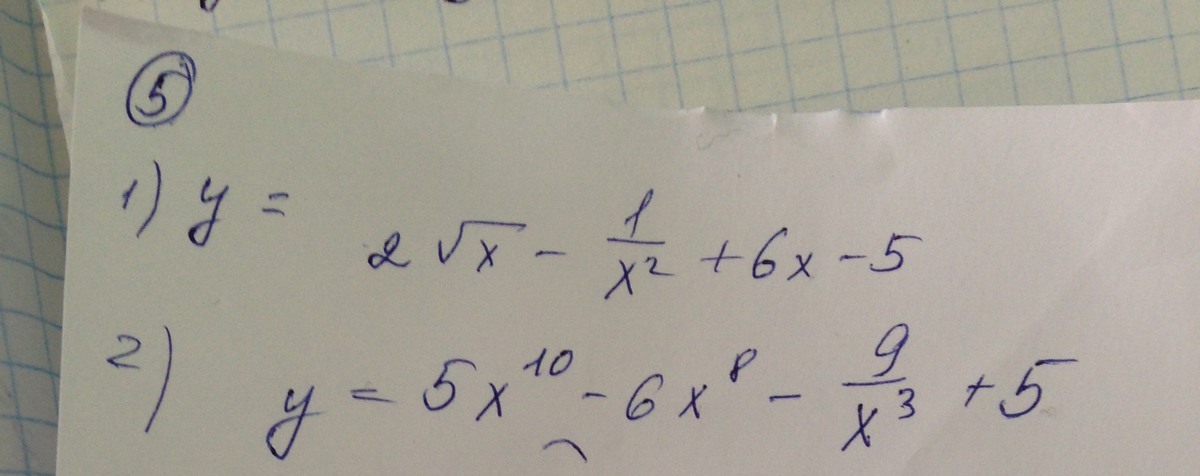 5
1) y = 2√x - 1/x² + 6x - 5
2) y = 5x¹⁰ - 6x⁸ - 9/x³ + 5